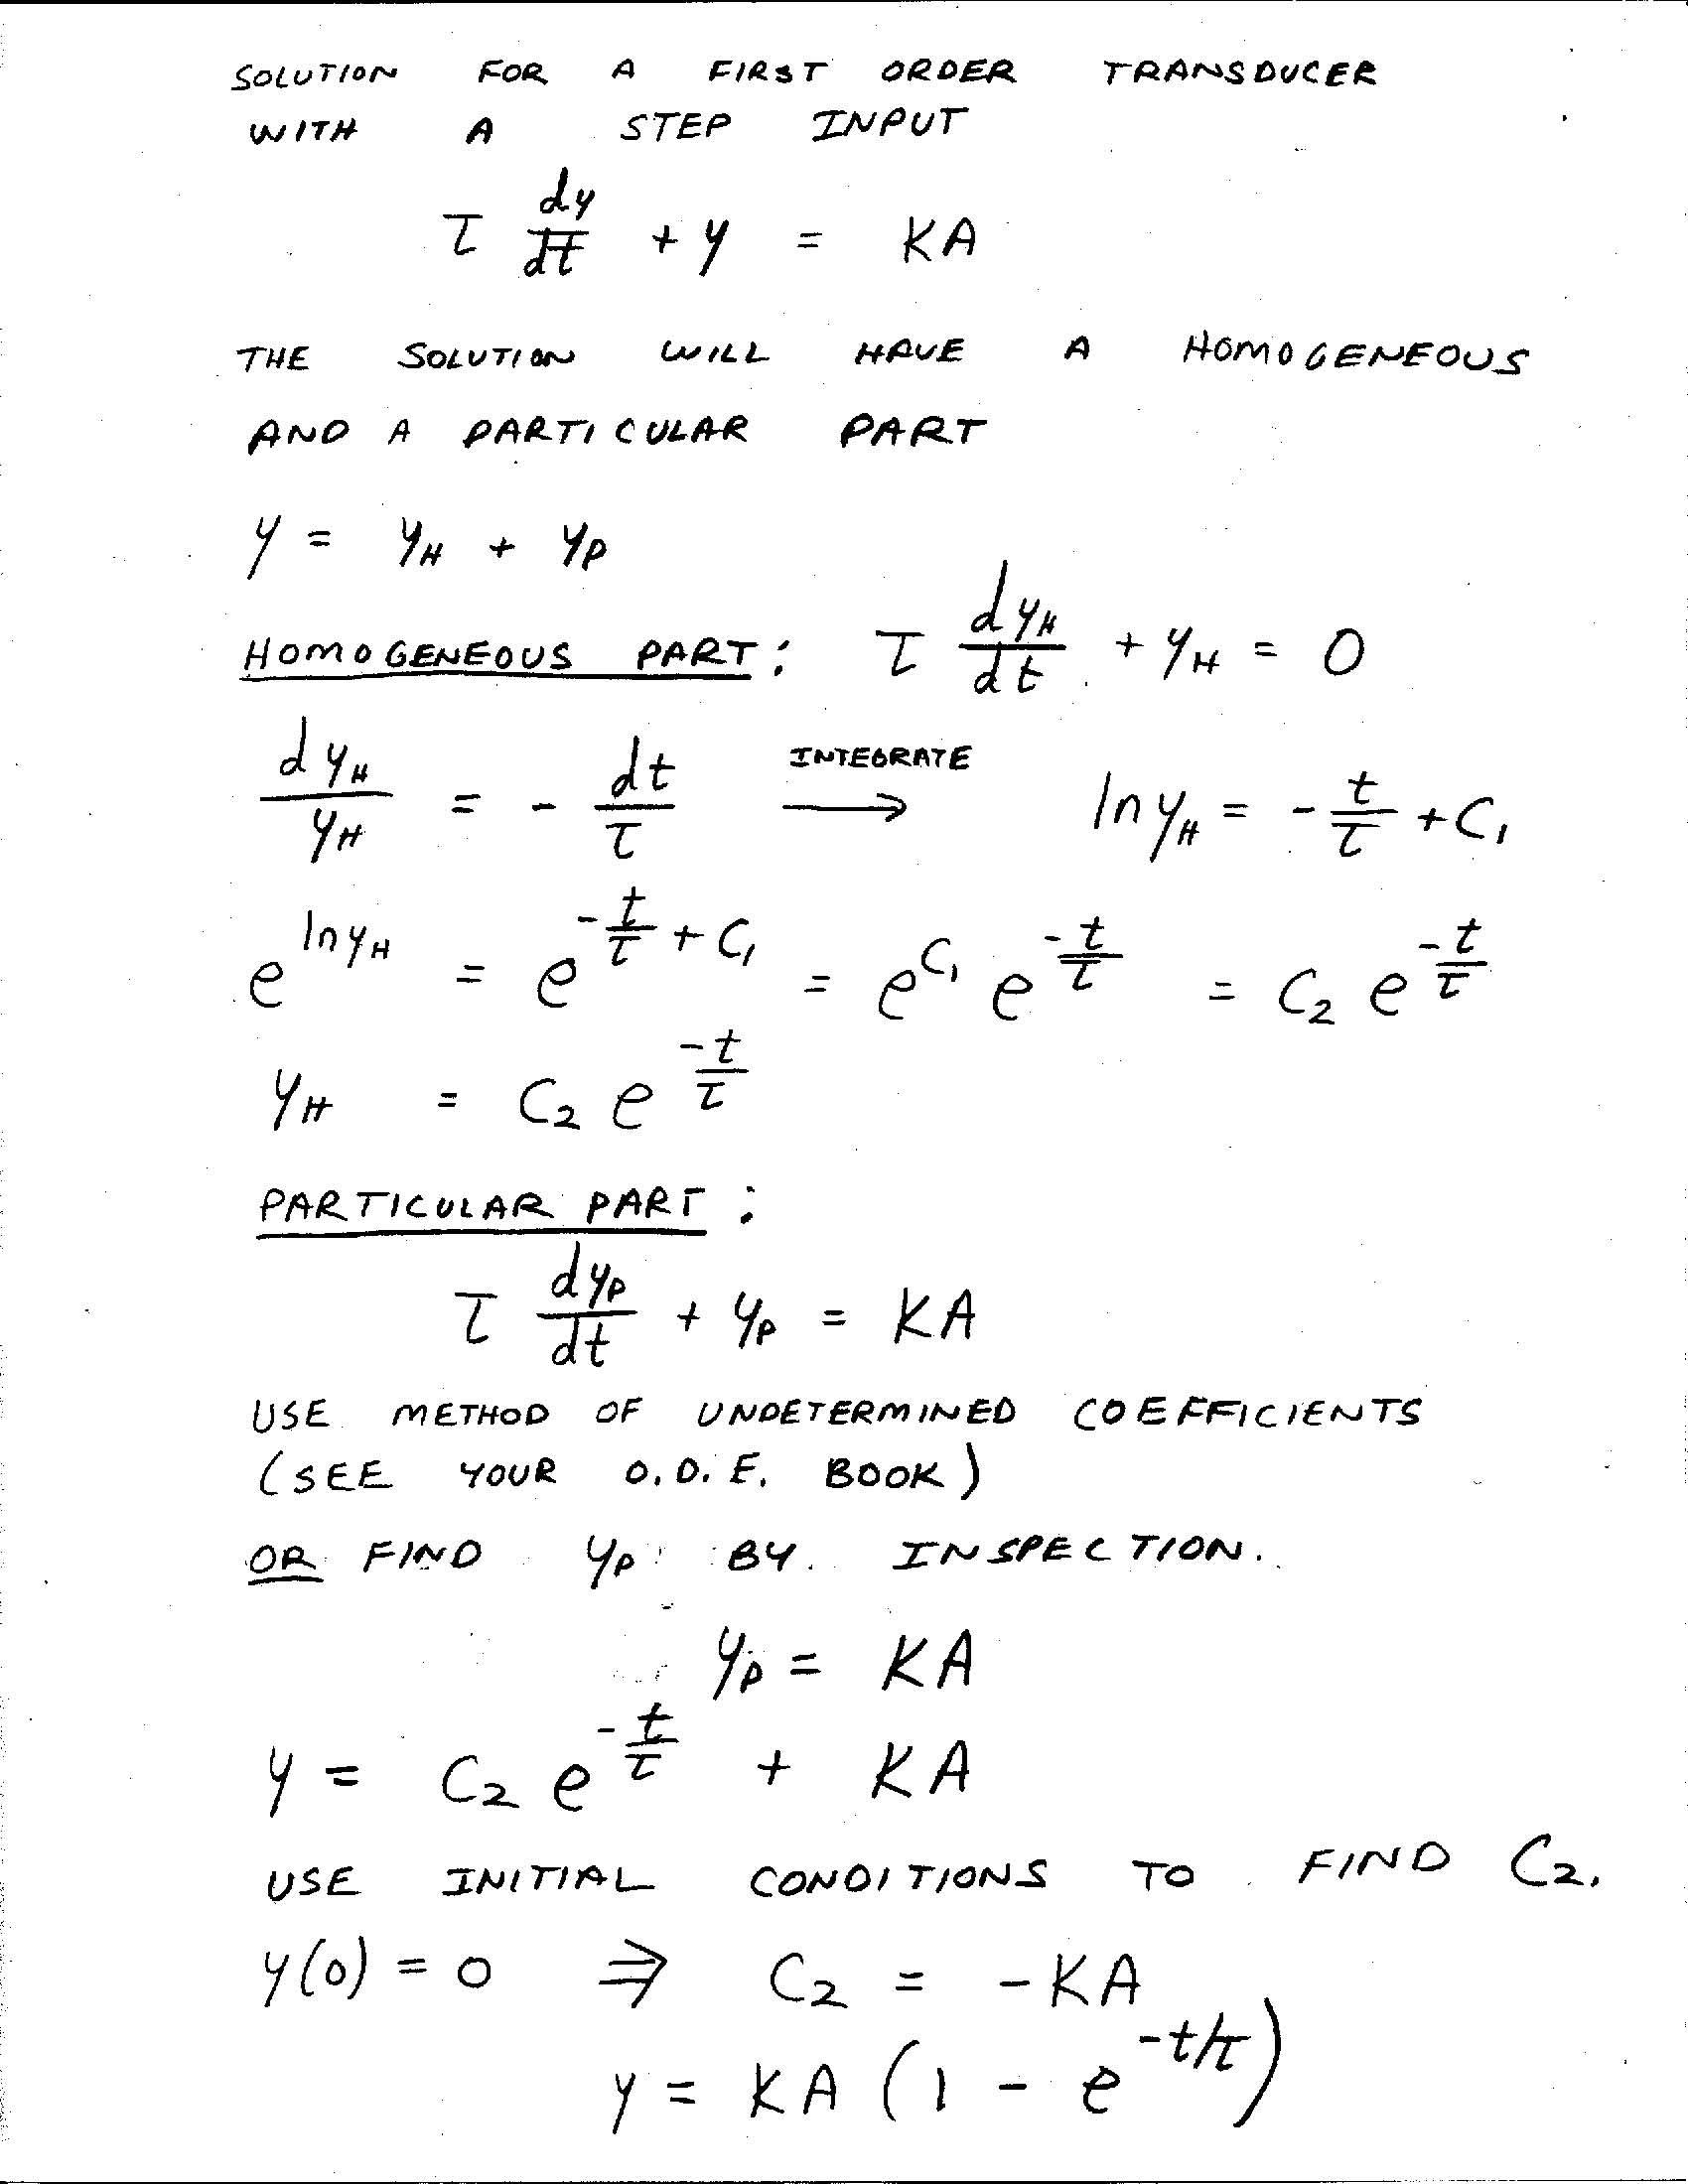 SOLUTION FOR A FIRST ORDER TRANSDUCER
WITH A STEP INPUT
τ dy/dt + y = KA
THE SOLUTION WILL HAVE A HOMOGENEOUS
AND A PARTICULAR PART
y = y_H + y_P
HOMOGENEOUS PART: τ dy_H/dt + y_H = 0
dy_H/y_H = - dt/τ INTEGRATE → ln y_H = - t/τ + C_1
e^(ln y_H) = e^(-t/τ + C_1) = e^(C_1) e^(-t/τ) = C_2 e^(-t/τ)
y_H = C_2 e^(-t/τ)
PARTICULAR PART:
τ dy_P/dt + y_P = KA
USE METHOD OF UNDETERMINED COEFFICIENTS
(SEE YOUR O.D.E. BOOK)
OR FIND y_P BY INSPECTION.
y_P = KA
y = C_2 e^(-t/τ) + KA
USE INITIAL CONDITIONS TO FIND C_2.
y(0) = 0 ⇒ C_2 = -KA
y = KA (1 - e^(-t/τ))